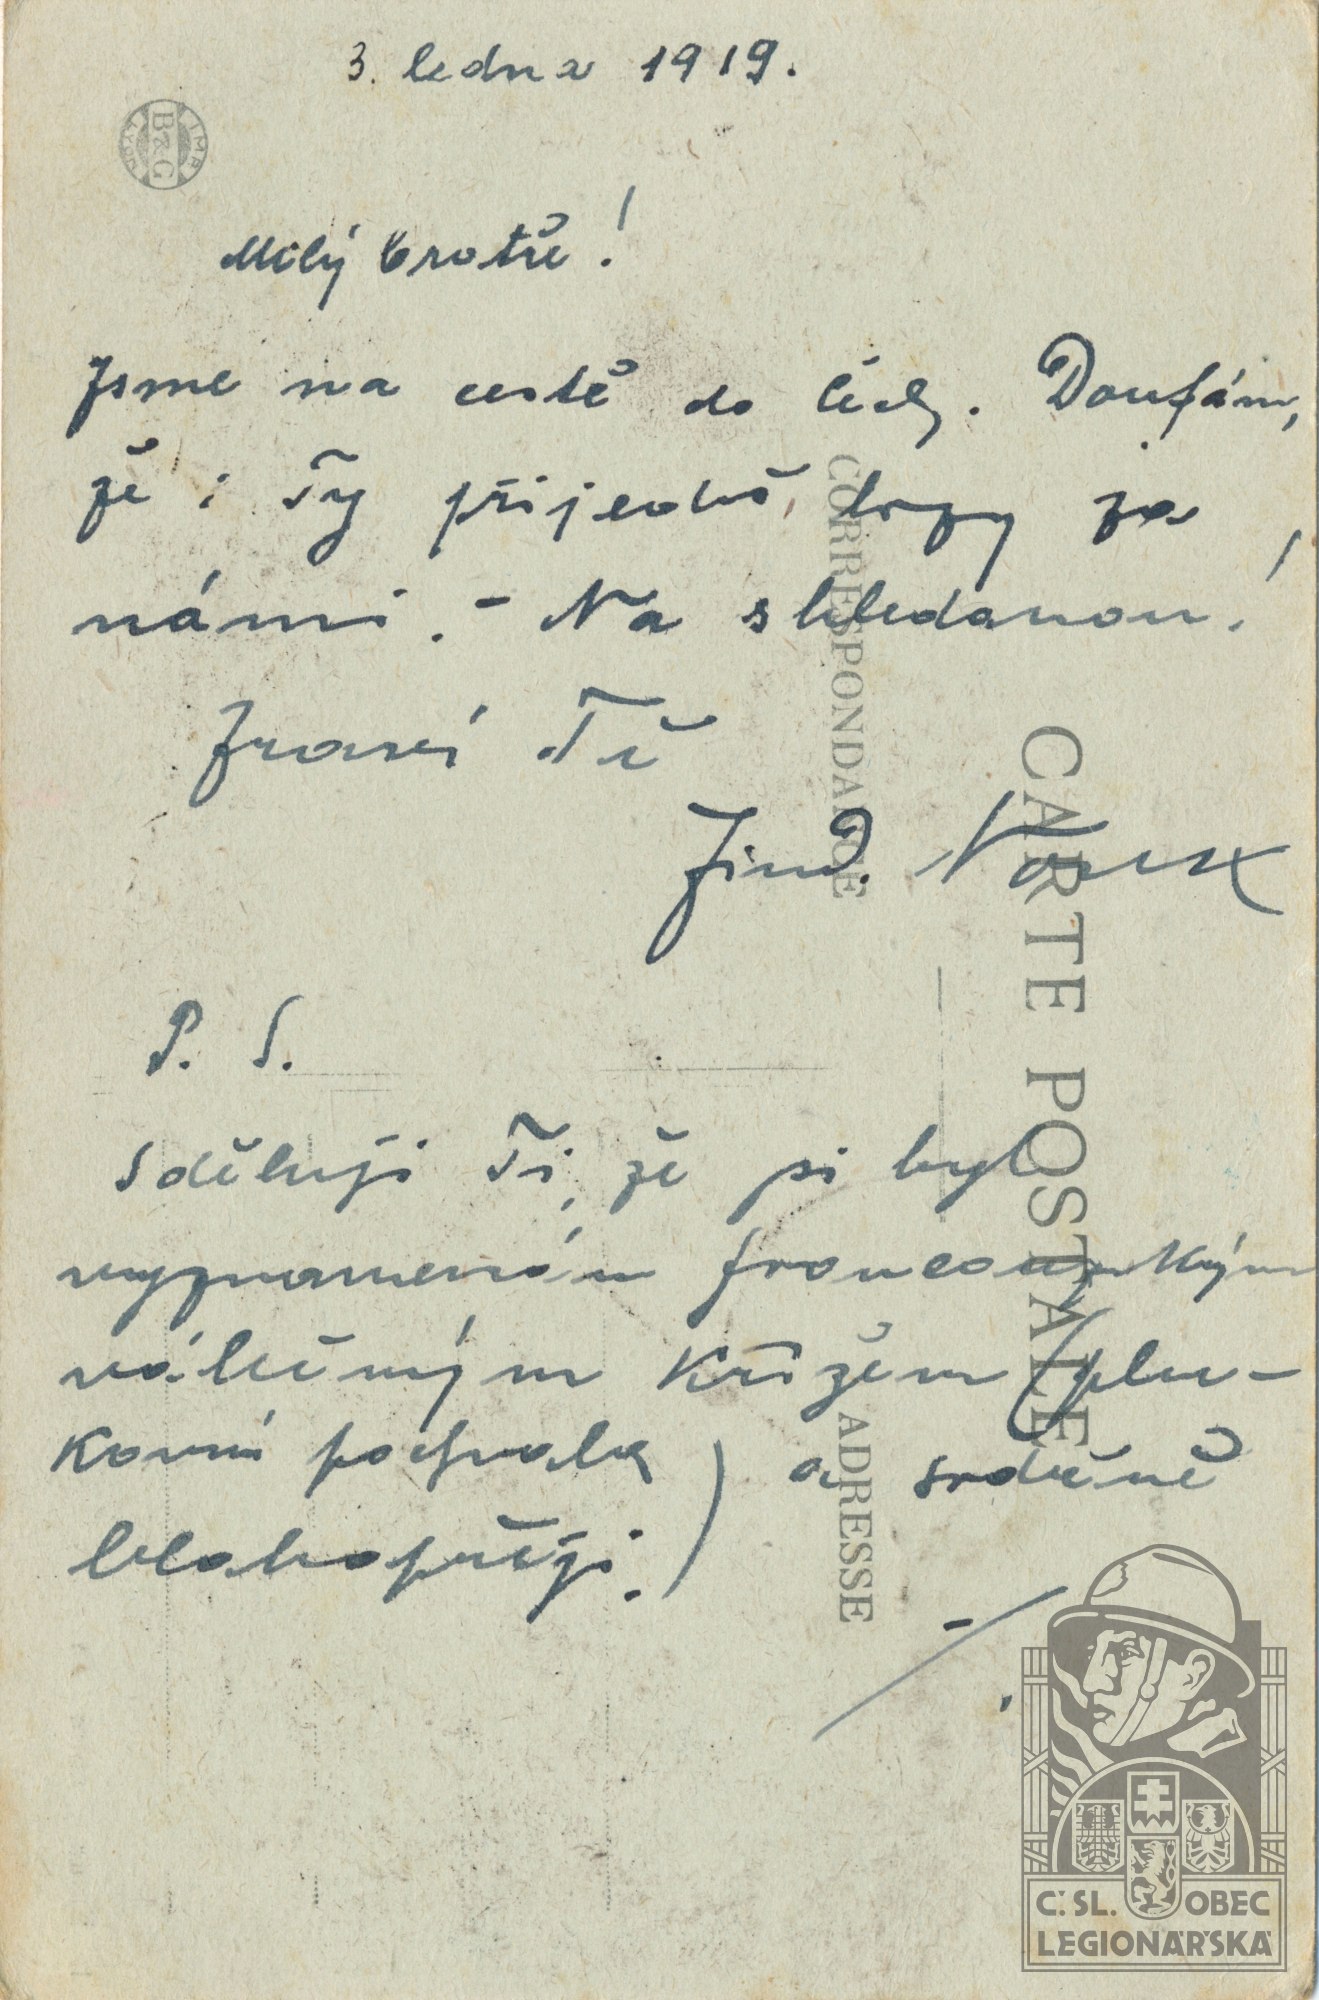 3. ledna 1919.
IMP. B & C LYON
Milý bratře!
Jsme na cestě do Čech. Doufám,
že i Ty přijedeš brzy za
námi. - Na shledanou!
Zdraví Tě
Jind. Nosek
P. S.
Sděluji Ti, že jsi byl
vyznamenán francouzským
válečným křížem (plu-
kovní pochvala) a srdečně
blahopřeji.
CORRESPONDANCE
CARTE POSTALE
ADRESSE
Č. SL. OBEC
LEGIONÁŘSKÁ